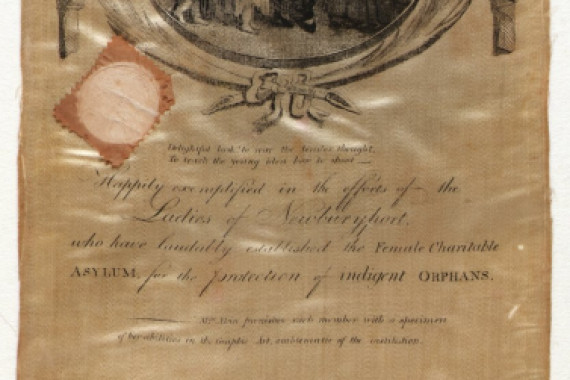 Delightful task! to rear the tender thought,
To teach the young idea how to shoot —
Happily exemplified in the efforts of the
Ladies of Newburyport,
who have laudably established the Female Charitable
ASYLUM, for the protection of indigent ORPHANS.
furnishes each member with a specimen
of her abilities in the Graphic Art, emblematic of the institution.